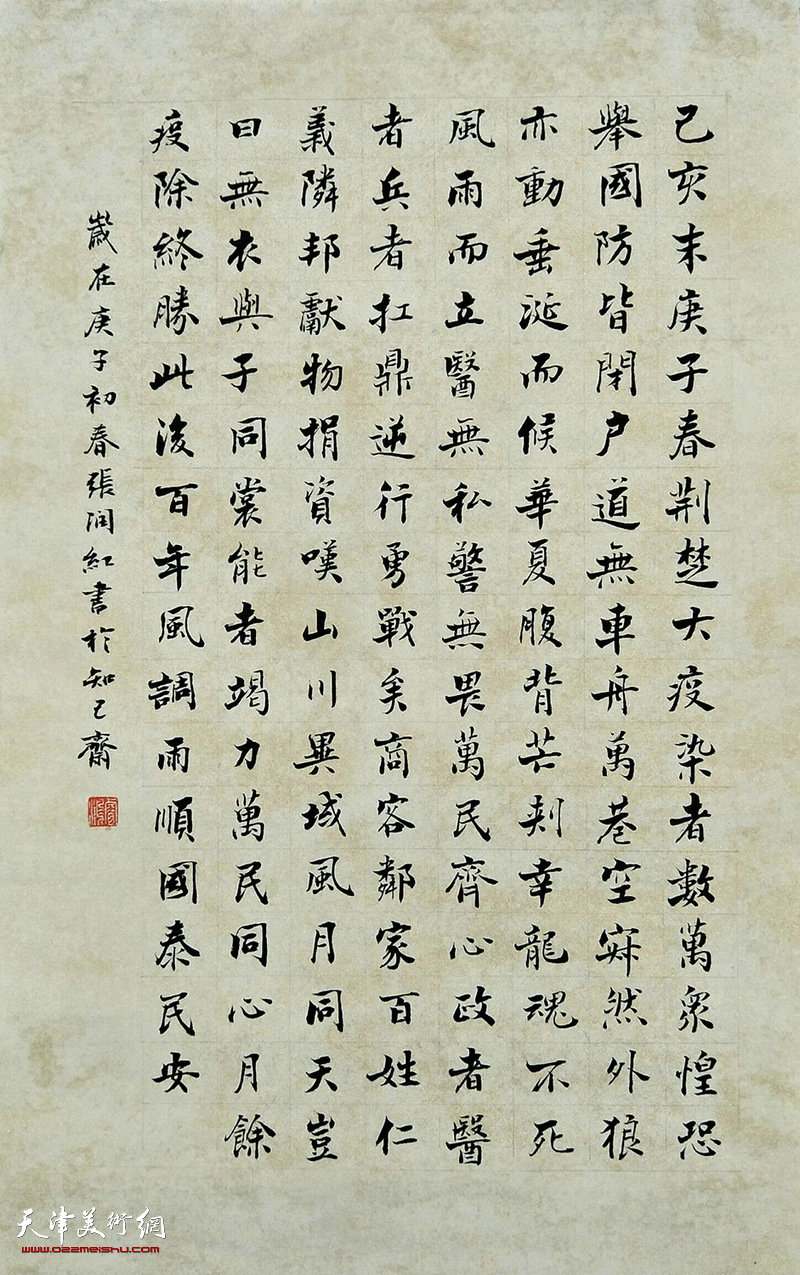 己亥末庚子春荆楚大疫染者數萬衆惶恐
舉國防皆閉户道無車舟萬巷空寂然外狼
亦動垂涎而候華夏腹背芒刺幸龍魂不死
風雨而立醫無私警無畏萬民齊心政者醫
者兵者扛鼎逆行勇戰矣商容鄰家百姓仁
義隣邦獻物捐資嘆山川異域風月同天豈
曰無衣與子同裳能者竭力萬民同心月餘
疫除終勝此後百年風調雨順國泰民安
歲在庚子初春張润紅書於知己齋
天津美術網
www.022meishu.com